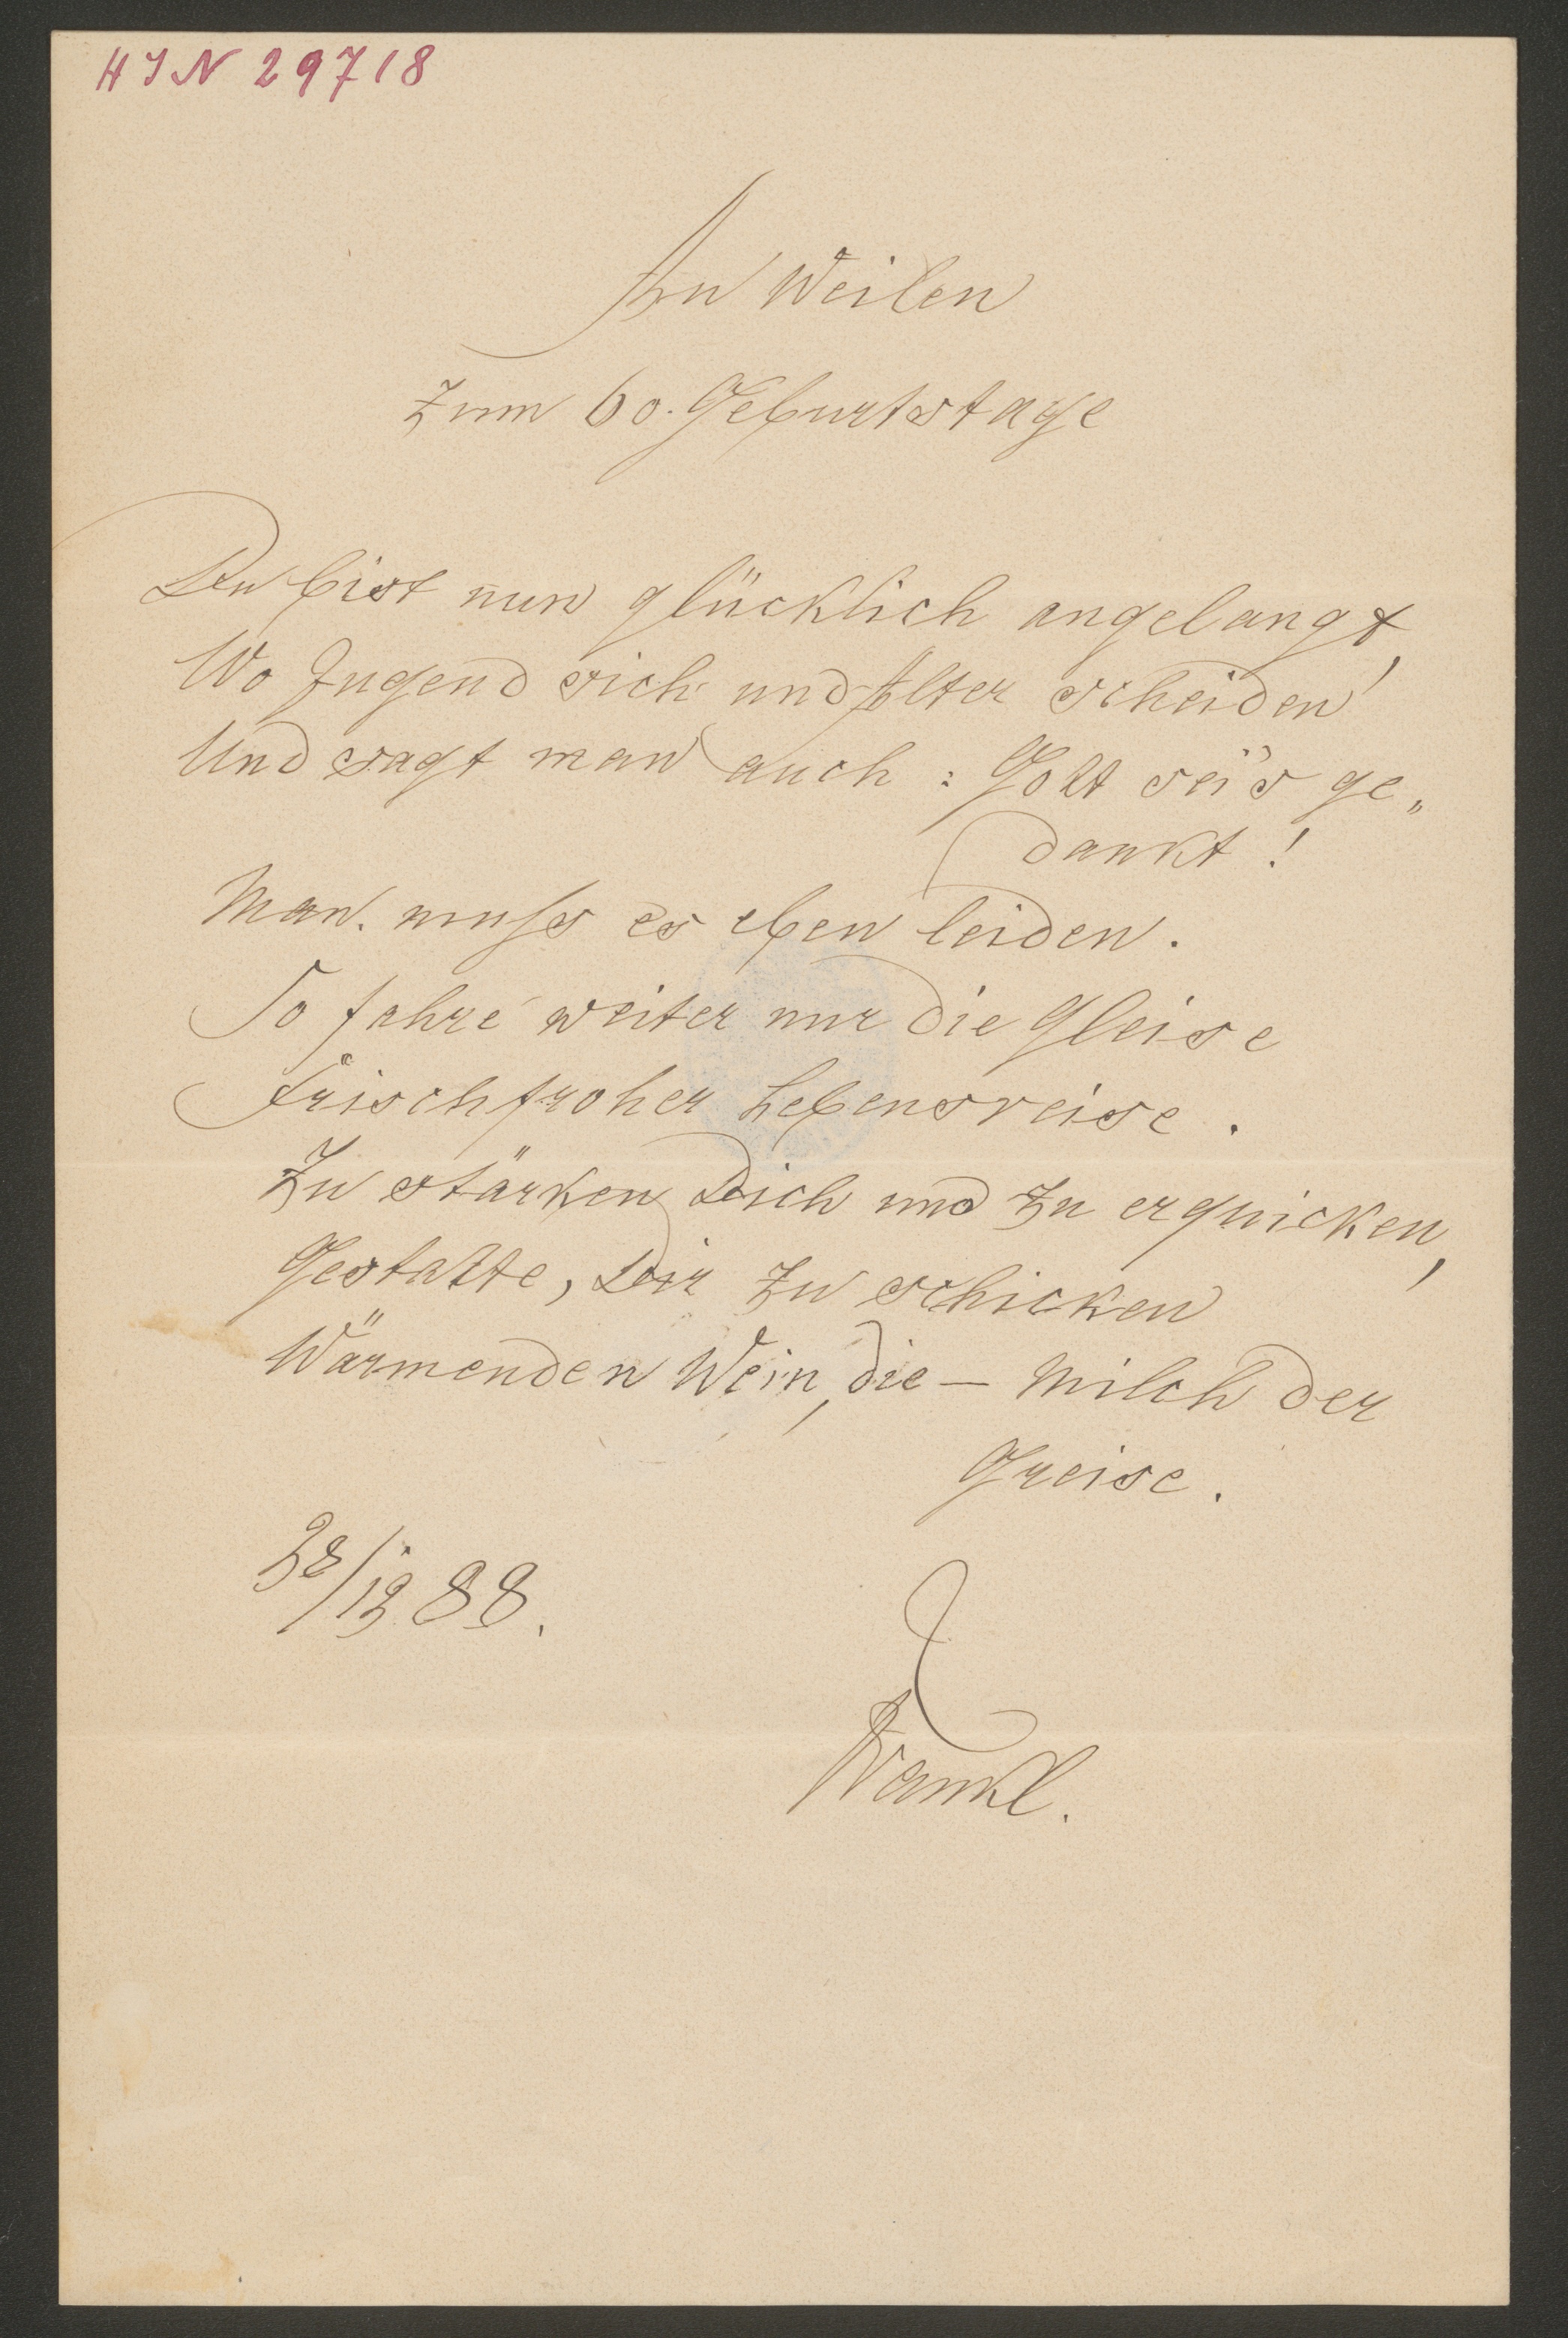 HIN 29718
An Weilen
zum 60. Geburtstage
Du bist nun glücklich angelangt,
Wo Jugend sich und Alter scheiden!
Und sagt man auch: Gott sei's ge„
dankt!
Man muss es eben leiden.
So fahre weiter nur die Gleise
Frischfroher Lebensreise.
Zu stärken Dich und zu erquicken,
Gestatte, Dir zu schicken
Wärmenden Wein, die — Milch der
Greise.
28/12 88.
Frankl.